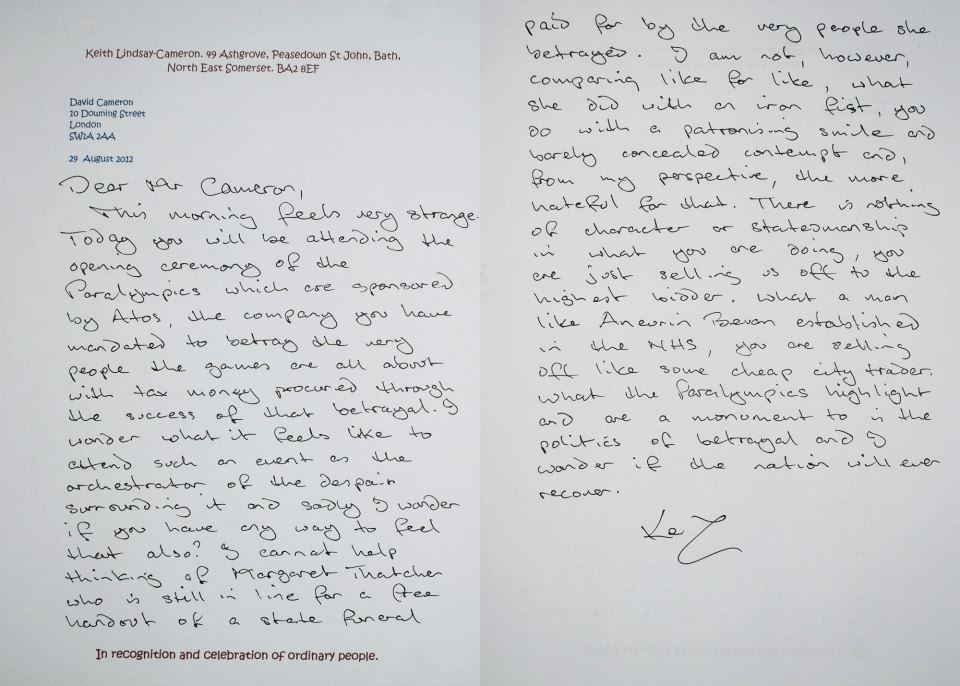 Keith Lindsay-Cameron. 49 Ashgrove, Peasedown St John, Bath,
North East Somerset. BA2 8EF
David Cameron
10 Downing Street
London
SW1A 2AA
29 August 2012
Dear Mr Cameron,
This morning feels very strange.
Today you will be attending the
opening ceremony of the
Paralympics which are sponsored
by Atos, the company you have
mandated to betray the very
people the games are all about
with tax money procured through
the success of that betrayal. I
wonder what it feels like to
attend such an event as the
orchestrator of the despair
surrounding it and sadly I wonder
if you have any way to feel
that also? I cannot help
thinking of Margaret Thatcher
who is still in line for a free
handout of a state funeral
In recognition and celebration of ordinary people.
paid for by the very people she
betrayed. I am not, however,
comparing like for like, what
she did with an iron fist, you
do with a patronising smile and
barely concealed contempt and,
from my perspective, the more
hateful for that. There is nothing
of character or statesmanship
in what you are doing, you
are just selling us off to the
highest bidder. What a man
like Aneurin Bevan established
in the NHS, you are selling
off like some cheap city trader.
What the Paralympics highlight
and are a monument to is the
politics of betrayal and I
wonder if the nation will ever
recover.